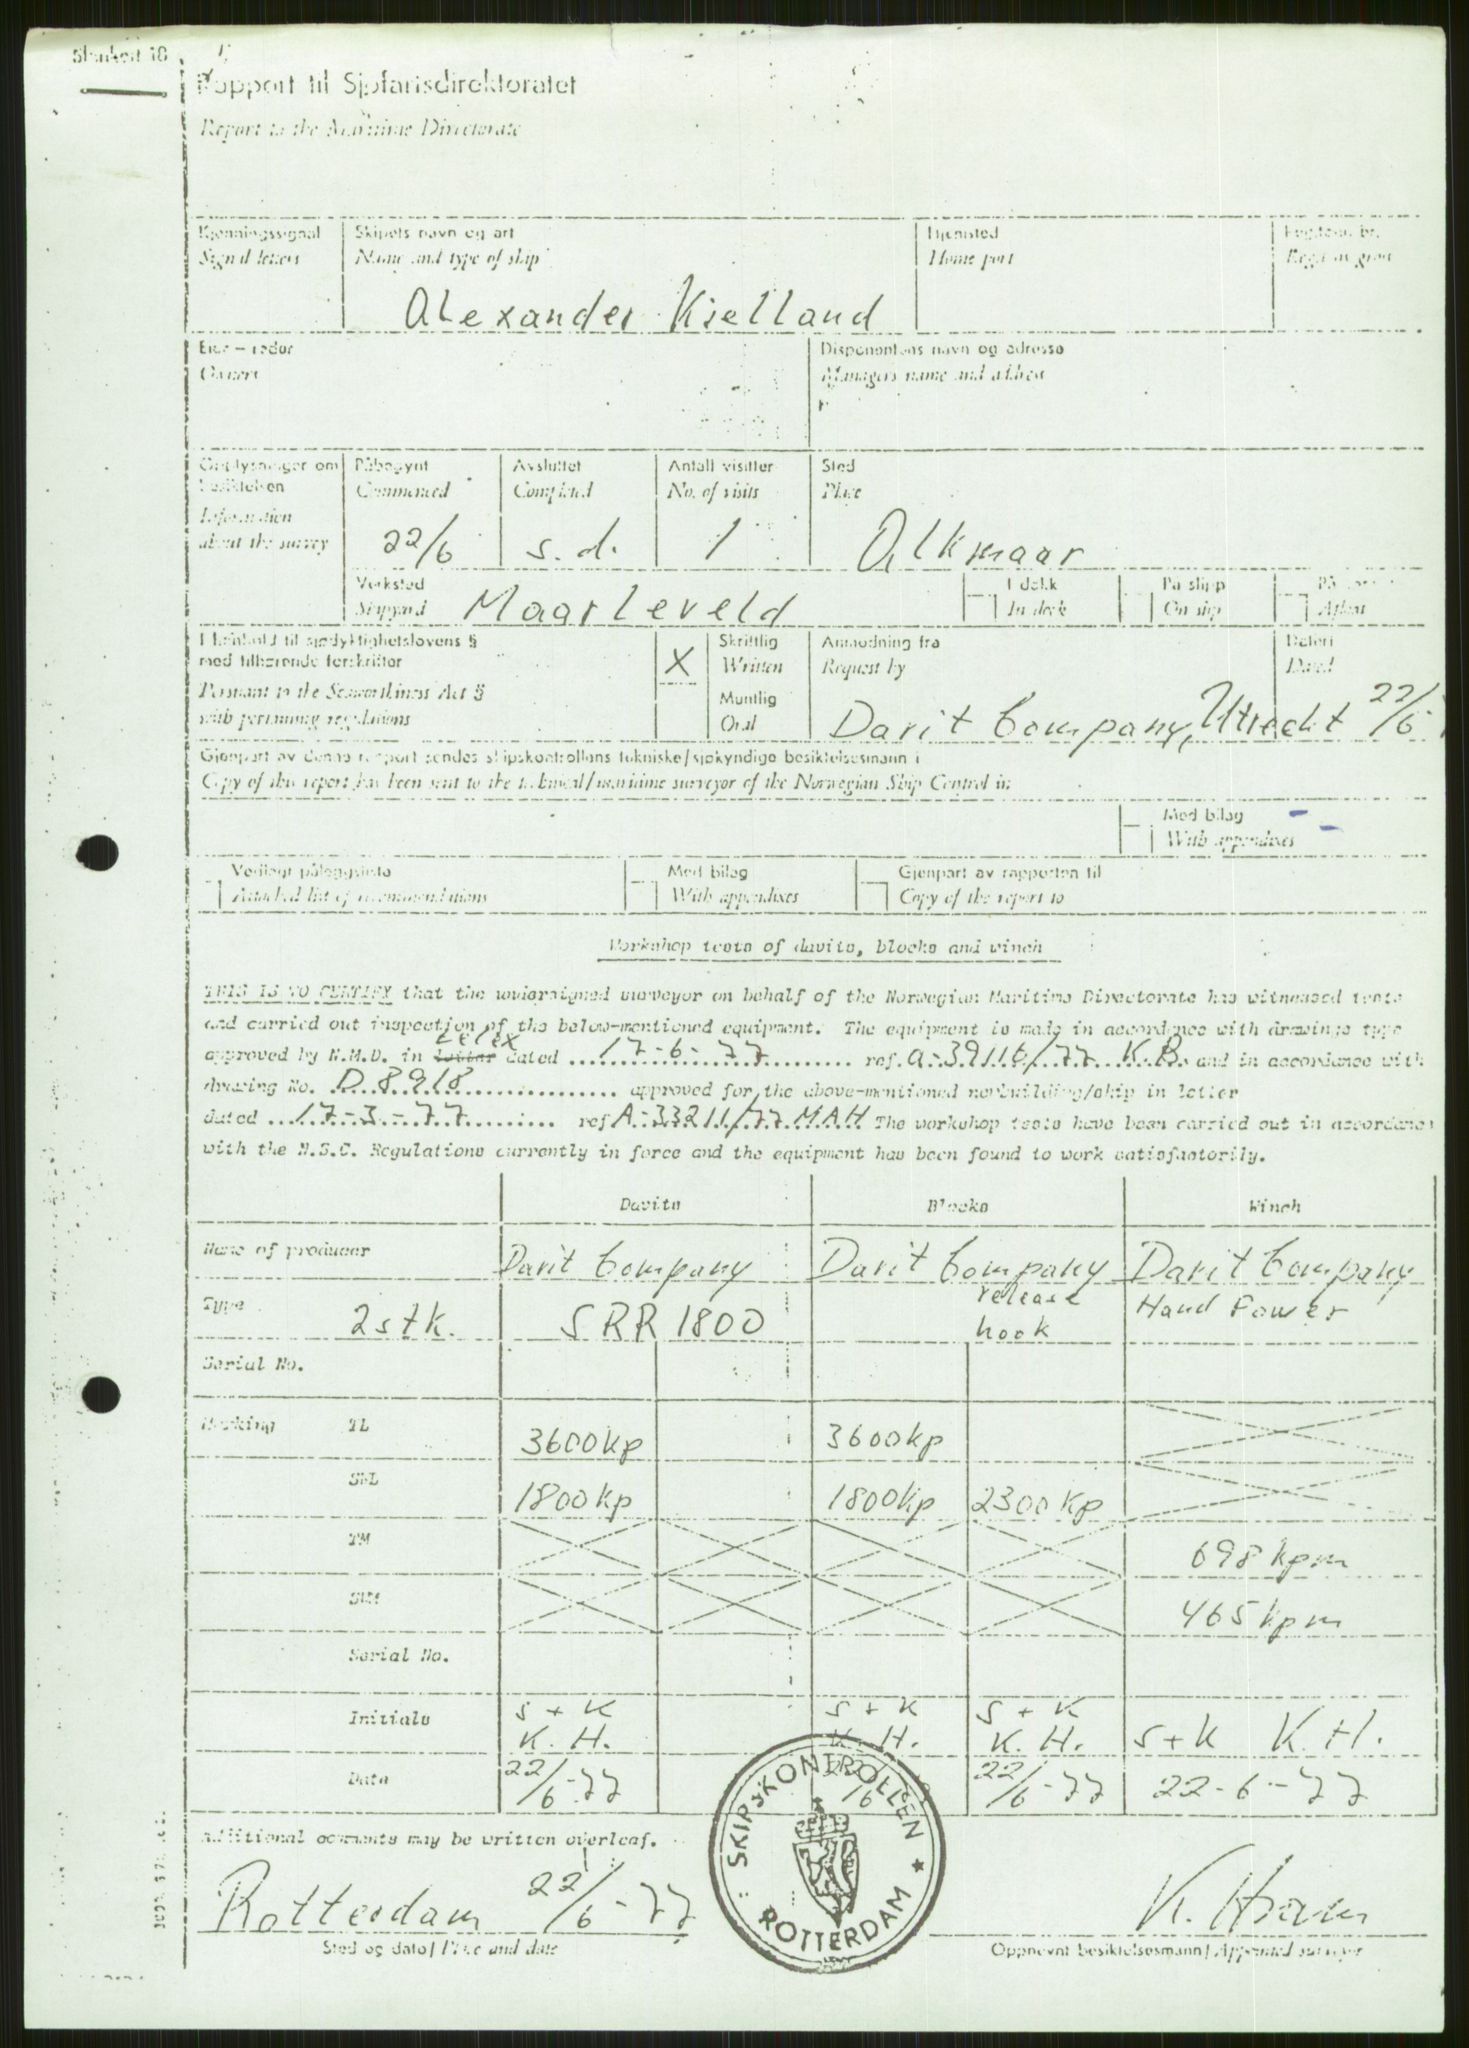 Blankett 10
Rapport til Sjøfartsdirektoratet
Report to the Maritime Directorate
Kjenningssignal
Signal letters
Skipets navn og art
Name and type of ship
Alexander Kielland
Hjemsted
Home port
Eier – reder
Owners
Disponentens navn og adresse
Managers name and address
Opplysninger om
besiktelsen
Information
about the survey
Påbegynt
Commenced
22/6
Avsluttet
Completed
s. d.
Antall visitter
No. of visits
1
Sted
Place
Alkmaar
Verksted
Shipyard
Maarleveld
I dokk
In dock
På slipp
On slip
Afloat
I henhold til sjødyktighetslovens §
med tilhørende forskrifter
Pursuant to the Seaworthiness Act §
with pertaining regulations
X
Skriftlig
Written
Muntlig
Oral
Anmodning fra
Request by
Datert
Dated
Davit Company, Utrecht 22/6
Gjenpart av denne rapport sendes skipskontrollens tekniske/sjøkyndige besiktelsesmann i
Copy of this report has been sent to the technical/maritime surveyor of the Norwegian Ship Control in
Med bilag
With appendixes
Vedlagt påleggsliste
Attached list of recommendations
Med bilag
With appendixes
Gjenpart av rapporten til
Copy of the report to
Workshop tests of davits, blocks and winch
THIS IS TO CERTIFY that the undersigned surveyor on behalf of the Norwegian Maritime Directorate has witnessed tests
and carried out inspection of the below-mentioned equipment. The equipment is made in accordance with drawings type
telex
approved by N.M.D. in letter dated ...17-6-77... ref. A-39116/77 K.B. and in accordance with
drawing No. D 8918 ... approved for the above-mentioned newbuilding/ship in letter
dated ...17-3-77... ref A-33211/77 MAH The workshop tests have been carried out in accordance
with the N.S.C. Regulations currently in force and the equipment has been found to work satisfactorily.
Davits Blocks Winch
Name of producer Davit Company Davit Company Davit Company
Type 2 stk. SRR 1800 release hook Hand Power
Serial No.
Marking TL 3600 kp 3600 kp
SWL 1800 kp 1800 kp 2300 kp
TM 698 kpm
SWM 465 kpm
Serial No.
Initials S+K K.H. S+K K.H. S+K K.H. S+K K.H.
Date 22/6-77 22/6 22/6-77 22-6-77
Additional comments may be written overleaf.
Rotterdam 22/6-77
Sted og dato/Place and date
SKIPSKONTROLLEN
ROTTERDAM
Oppnevnt besiktelsesmann/Appointed surveyor